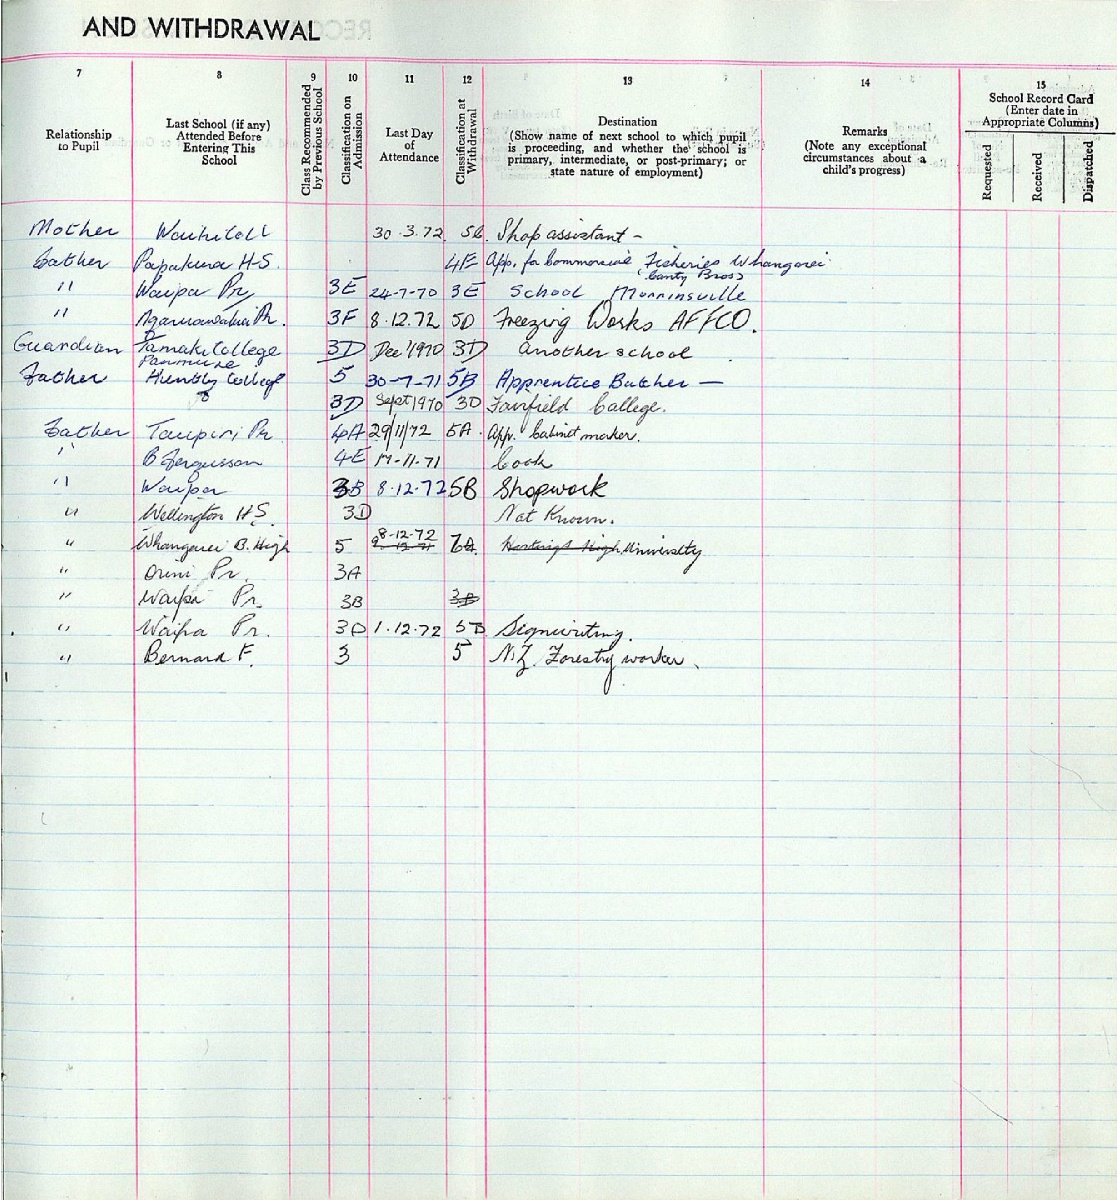 AND WITHDRAWAL
7 8 9 10 11 12 13 14 15
Relationship to Pupil
Last School (if any) Attended Before Entering This School
Class Recommended by Previous School
Classification on Admission
Last Day of Attendance
Classification at Withdrawal
Destination (Show name of next school to which pupil is proceeding, and whether the school is primary, intermediate, or post-primary; or state nature of employment)
Remarks (Note any exceptional circumstances about a child's progress)
School Record Card (Enter date in Appropriate Columns)
Requested Received Dispatched
Mother 30.3.72 Shop assistant –
Father Papakura H.S. 4E App. for Commercial Fisheries Whangarei
" Waipa Pr. 3E 24-7-70 3E School Morrinsville
" Ngaruawahia Pr. 3F 8.12.72 5D Freezing Works AFFCO.
Guardian Tamaki College 3D Dec 1970 3D another school
Panmure
Father Huntly College 5 30-7-71 5B Apprentice Butcher —
3D Sept 1970 3D Fairfield College.
Father Taupiri Pr. 4A 29/11/72 5A. App. Cabinet maker.
" B Fergusson 4E 17-11-71 Cook
" Waipa 3B 8.12.72 5B Shopwork
" Wellington H.S. 3D Not Known.
8-12-72
" Whangarei B. High 5 University
" Orini Pr. 3A
" Waipa Pr. 3B 3B
" Waipa Pr. 3D 1.12.72 5B Signwriting.
" Bernard F. 3 5 N.Z. Forestry worker.